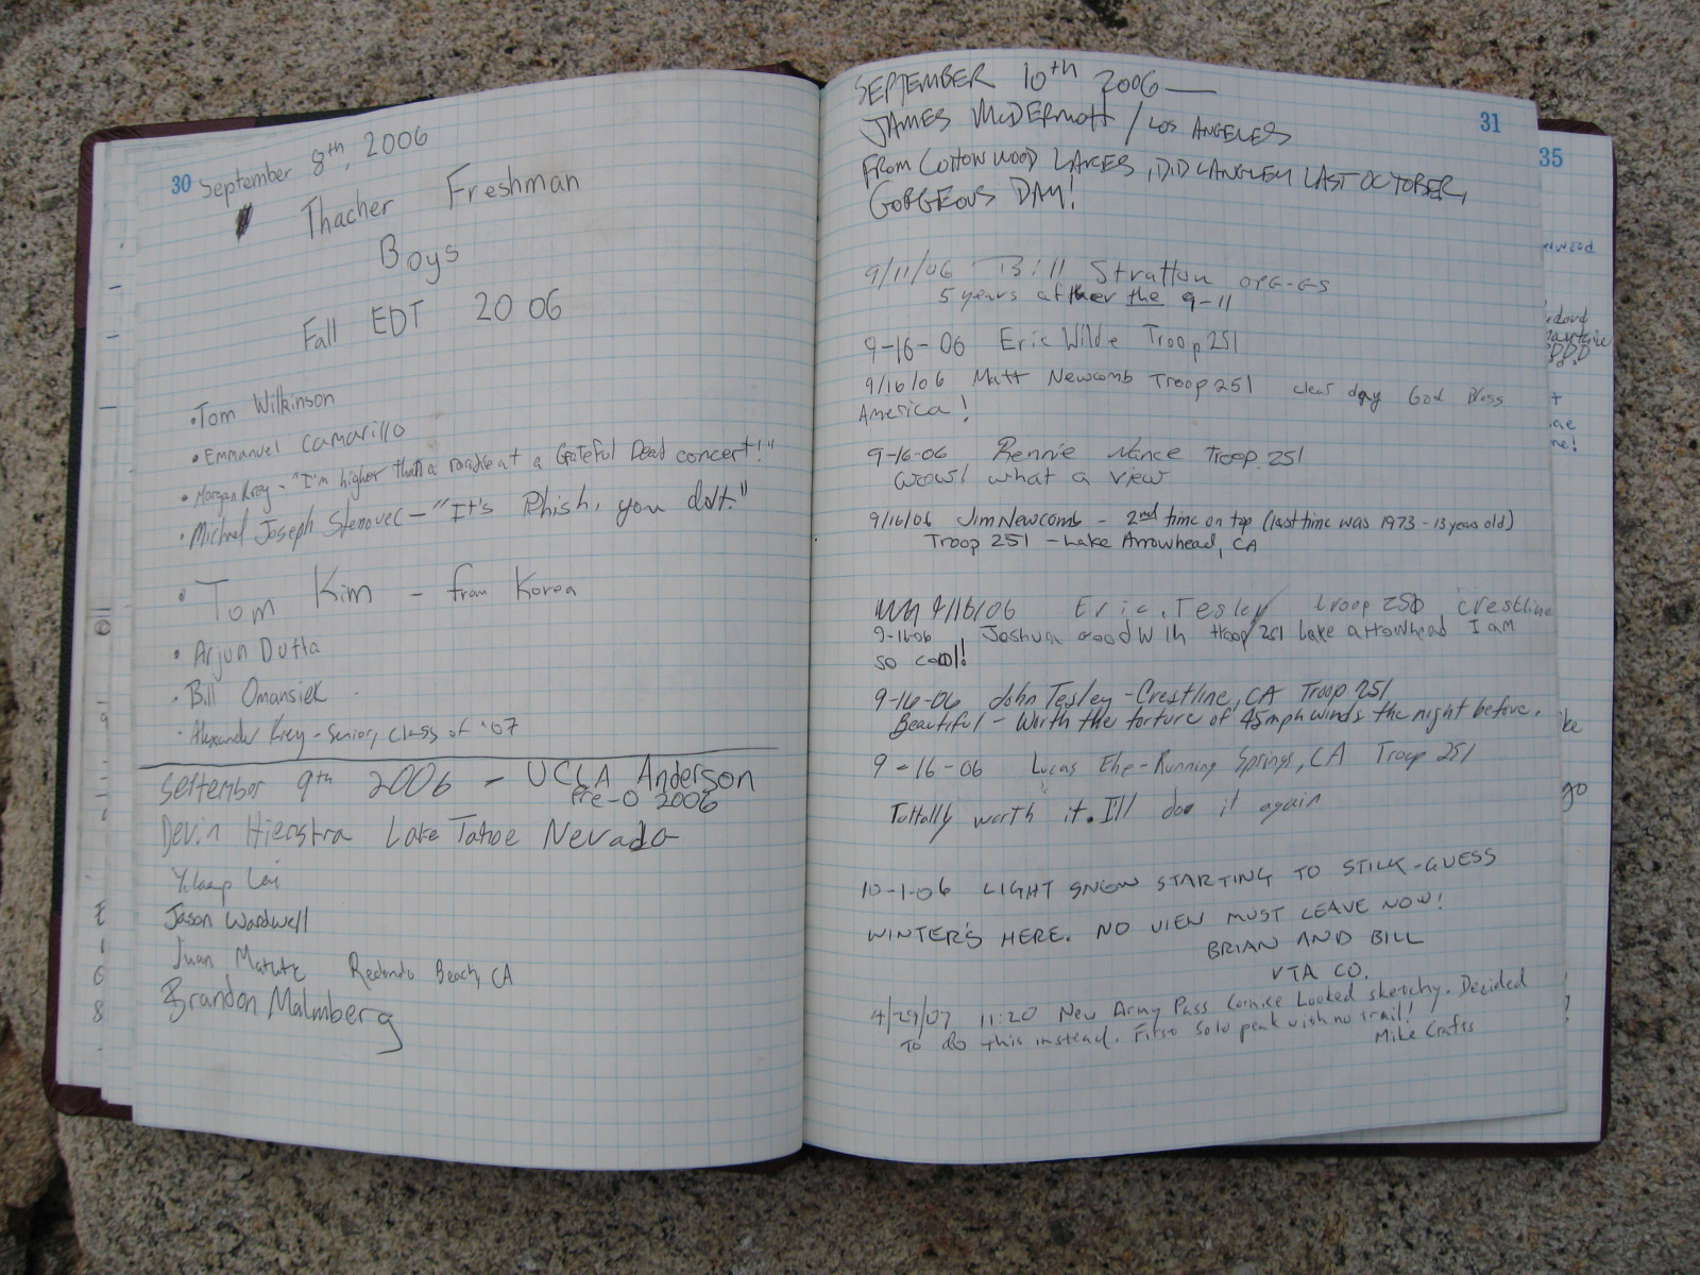 30 September 8th, 2006
Thacher Freshman
Boys
Fall EDT 2006
• Tom Wilkinson
• Emmanuel Camarillo
• Morgan Krey - "I'm higher than a roadie at a Grateful Dead concert!"
• Michael Joseph Stenovec - "It's Phish, you dolt."
• Tom Kim - from Korea
• Arjun Dutta
• Bill Omansiek
• Alexander Krey - Senior, class of '07
September 9th 2006 - UCLA Anderson
Pre-O 2006
Devin Hienstra Lake Tahoe Nevada
Lai
Jason Wardwell
Juan Matute Redondo Beach, CA
Brandon Malmberg
31
SEPTEMBER 10th 2006 —
JAMES McDERMOTT / LOS ANGELES
FROM COTTONWOOD LAKES, DID LANGLEY LAST OCTOBER,
GORGEOUS DAY!
9/11/06 13:11 Stratton
5 years after the 9-11
9-16-06 Eric Wilde Troop 251
9/16/06 Matt Newcomb Troop 251 clear day God Bless
America!
9-16-06 Rennie Nance Troop 251
wows! what a view
9/16/06 Jim Newcomb - 2nd time on top (last time was 1973 - 13 years old)
Troop 251 - Lake Arrowhead, CA
9/16/06 Eric Tesley troop 251 crestline
9-16-06 Joshua goodwin troop 251 Lake arrowhead I am
so cool!
9-16-06 John Tesley - Crestline, CA Troop 251
Beautiful - Worth the torture of 45mph winds the night before.
9-16-06 Lucas Ehe - Running Springs, CA Troop 251
Tottally worth it. I'll do it again
10-1-06 LIGHT SNOW STARTING TO STICK - GUESS
WINTER'S HERE. NO VIEW MUST LEAVE NOW!
BRIAN AND BILL
VTA CO.
4/29/07 11:20 New Army Pass Cornice Looked sketchy. Decided
To do this instead. First solo peak with no trail!
Mike Crafts
35
go